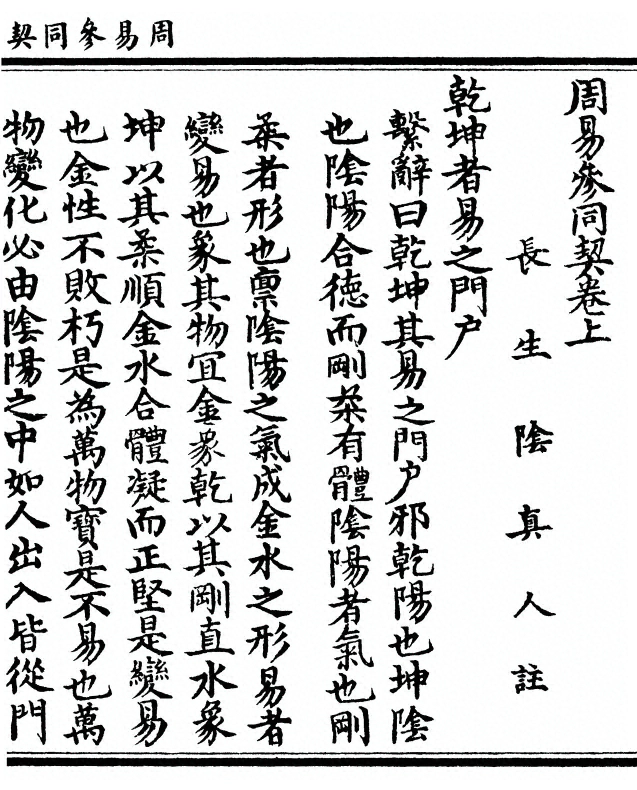 周易參同契
周易參同契卷上
長生陰真人註
乾坤者易之門户
繫辭曰乾坤其易之門户邪乾陽也坤陰
也陰陽合德而剛柔有體陰陽者氣也剛
柔者形也禀陰陽之氣成金水之形易者
變易也象其物宜金象乾以其剛直水象
坤以其柔順金水合體凝而正堅是變易
也金性不敗朽是為萬物寶是不易也萬
物變化必由陰陽之中如人出入皆從門